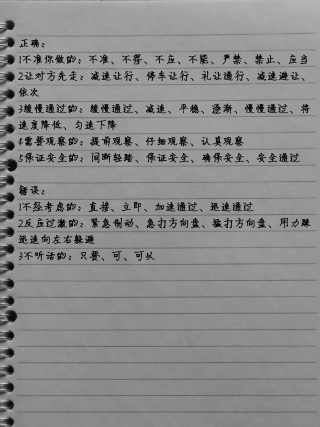 正确：
1不准你做的：不准、不得、不应、不能、严禁、禁止、应当
2让对方先走：减速让行、停车让行、礼让通行、减速避让、
依次
3缓慢通过的：缓慢通过、减速、平稳、逐渐、慢慢通过、将
速度降低、匀速下降
4需要观察的：提前观察、仔细观察、认真观察
5保证安全的：间断轻踏、保证安全、确保安全、安全通过
错误：
1不经考虑的：直接、立即、加速通过、迅速通过
2反应过激的：紧急制动、急打方向盘、猛打方向盘、用力踩
迅速向左右躲避
3不听话的：只要、可、可以